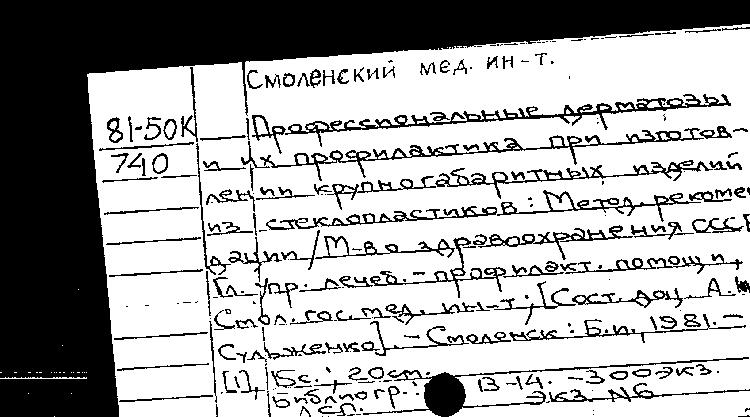 Смоленский мед. ин-т.
81-50К Профессиональные дерматозы
740 и их профилактика при изготов-
лении крупногабаритных изделий
из стеклопластиков : Метод. рекомен
дации / М-во здравоохранения СССР
Гл. упр. лечеб.-профилакт. помощи,
Смол. гос. мед. ин-т ; [Сост. доц. А.
Сульженко]. - Смоленск : Б.и., 1981. -
[1], 15с. ; 20см.
Библиогр.: 13-14. - 300экз.
экз. N6